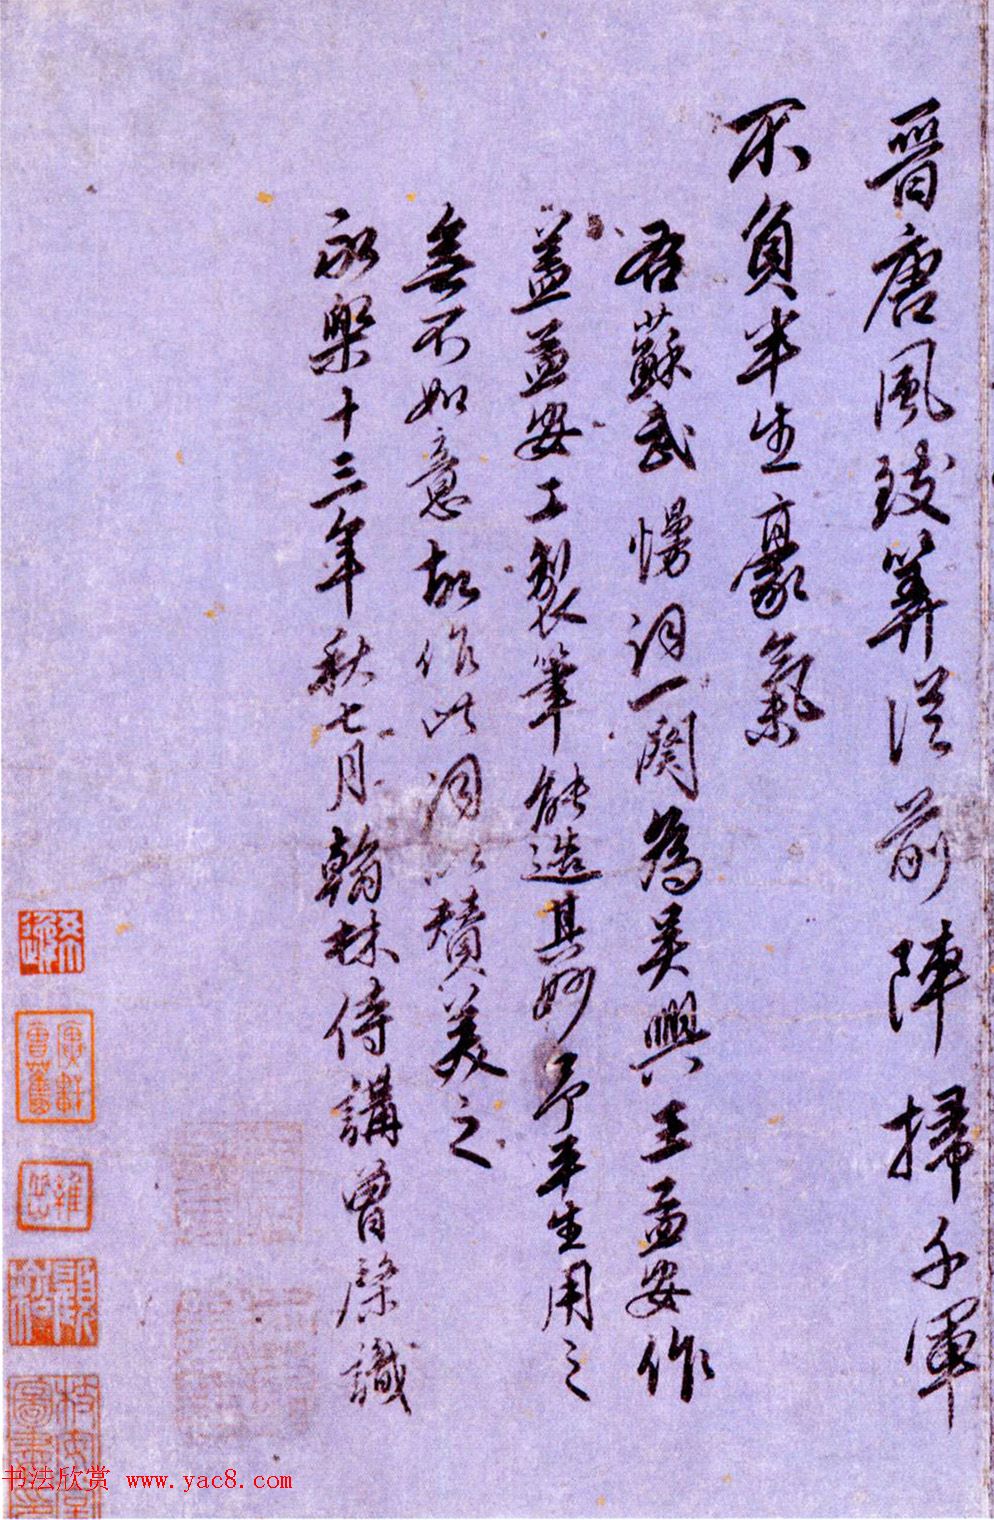 晉唐風致筭從前陣掃千軍
不負半生豪氣
右蘇武慢詞一闋為吴興王孟安作
盖孟安工製筆能造其妙予平生用之
無不如意故作此詞以賛美之
永樂十三年秋七月翰林侍講曾棨識
书法欣赏 www.yac8.com